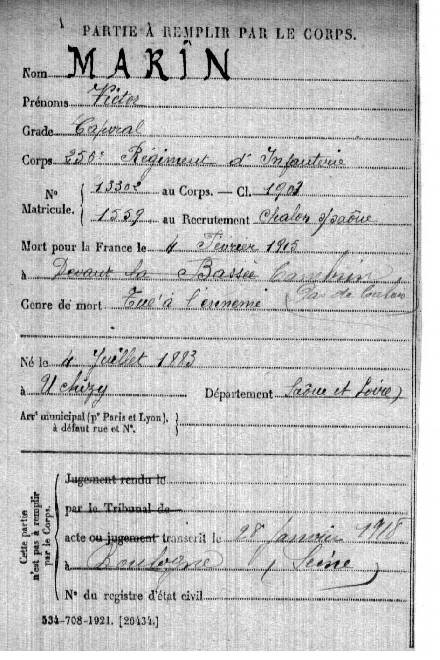 PARTIE À REMPLIR PAR LE CORPS.
Nom MARIN
Prénoms Victor
Grade Caporal
Corps 250e Régiment d'Infanterie
No Matricule. { 13302 au Corps. — Cl. 1903
1559 au Recrutement Chalon s/saône
Mort pour la France le 4 Février 1915
à Devant la Bassée Cambrin
Pas de Calais
Genre de mort Tué à l'ennemi
Né le 4 Juillet 1883
à Uchizy Département Saône et Loire)
Arrt municipal (pr Paris et Lyon), à défaut rue et No. }
Cette partie n'est pas à remplir par le Corps.
Jugement rendu le
par le Tribunal de
acte ou jugement transcrit le 28 Janvier 1918
à Boulogne, Seine
No du registre d'état civil
534-708-1921. [26434.]